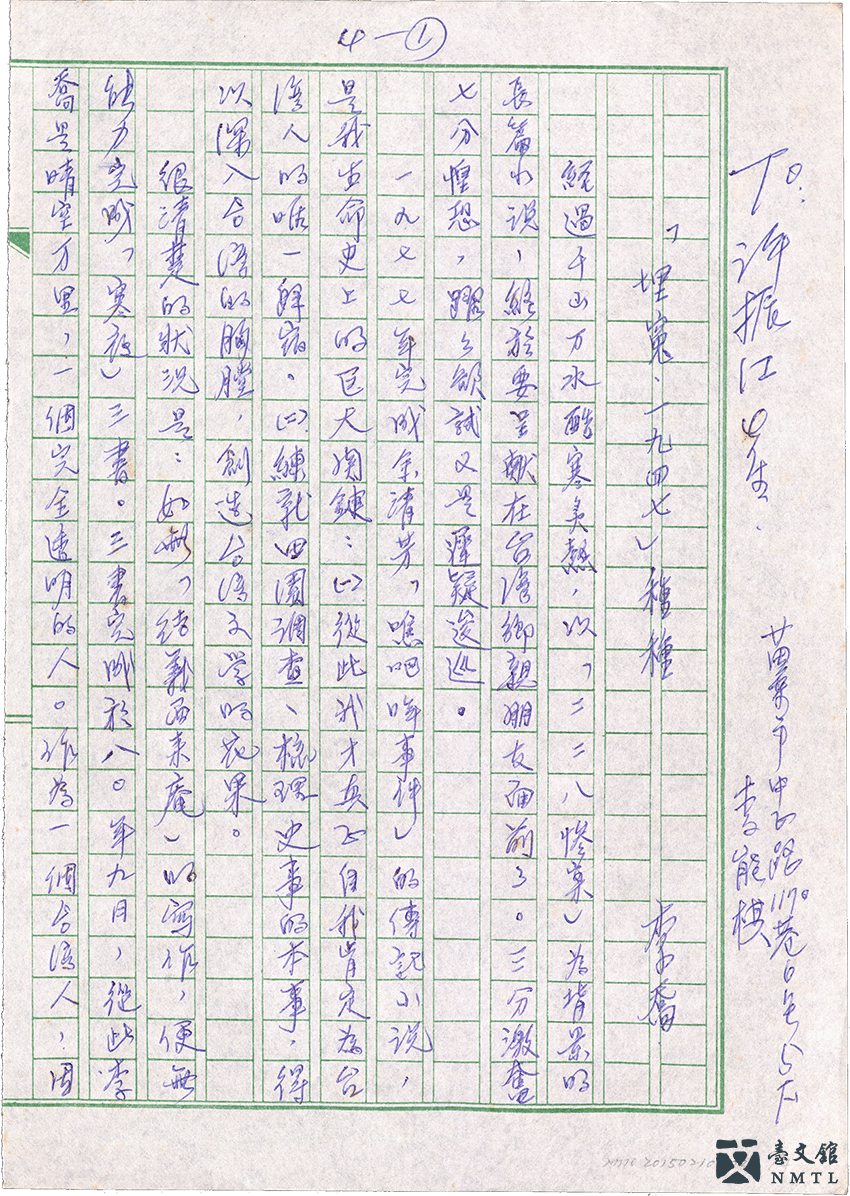 4-①
To: 許振江先生.
苗栗市中正路1170巷6号5F
李能棋
「埋冤‧一九四七」種種
李喬
經過千山万水酷寒炙熱,以「二二八慘案」為背景的
長篇小說,終於要呈献在台湾鄉親朋友面前了。三分激奮
七分惶恐,躍々欲試又是遲疑逡巡。
一九七七年完成余清芳「噍吧哖事件」的傳記小說,
是我生命史上的巨大関鍵:㈠從此我才真正自我肯定為台
湾人的唯一解病。㈡練就田園調查、梳理史事的本事,得
以深入台湾的胸膛,創造台湾文学的花果。
很清楚的狀況是:如無「結義西来庵」的寫作,便無
能力完成「寒夜」三書。三書完成於八〇年九月,從此李
喬是晴空万里,一個完全透明的人。作為一個台湾人,因
NMTL 2015021
臺文館
NMTL